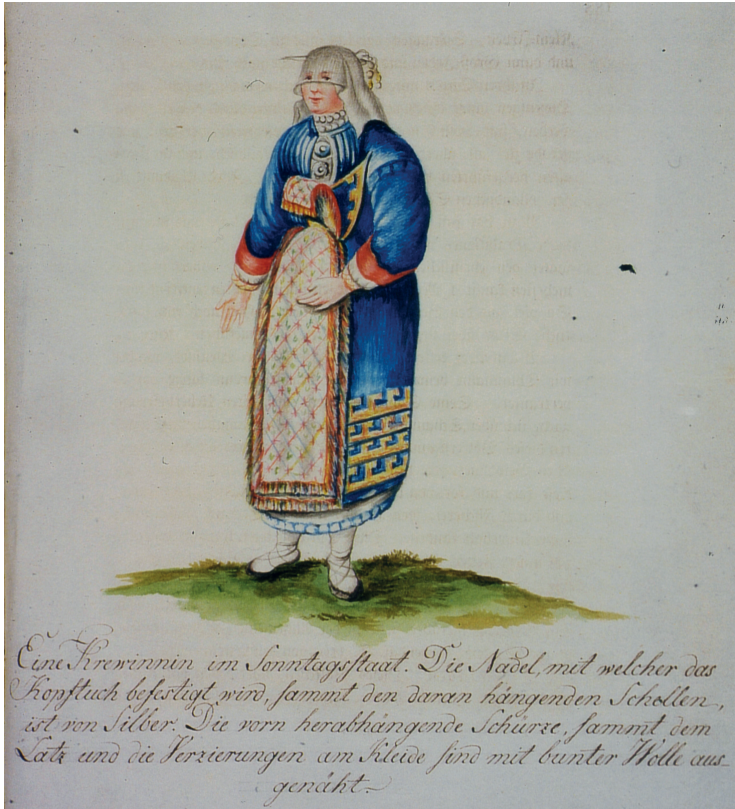 Eine Krewinnin im Sonntagsstaat. Die Nadel, mit welcher das
Kopftuch befestigt wird, sammt den daran hängenden Schollen,
ist von Silber. Die vorn herabhängende Schürze, sammt dem
Latz und die Verzierungen am Kleide sind mit bunter Wolle aus-
genäht.